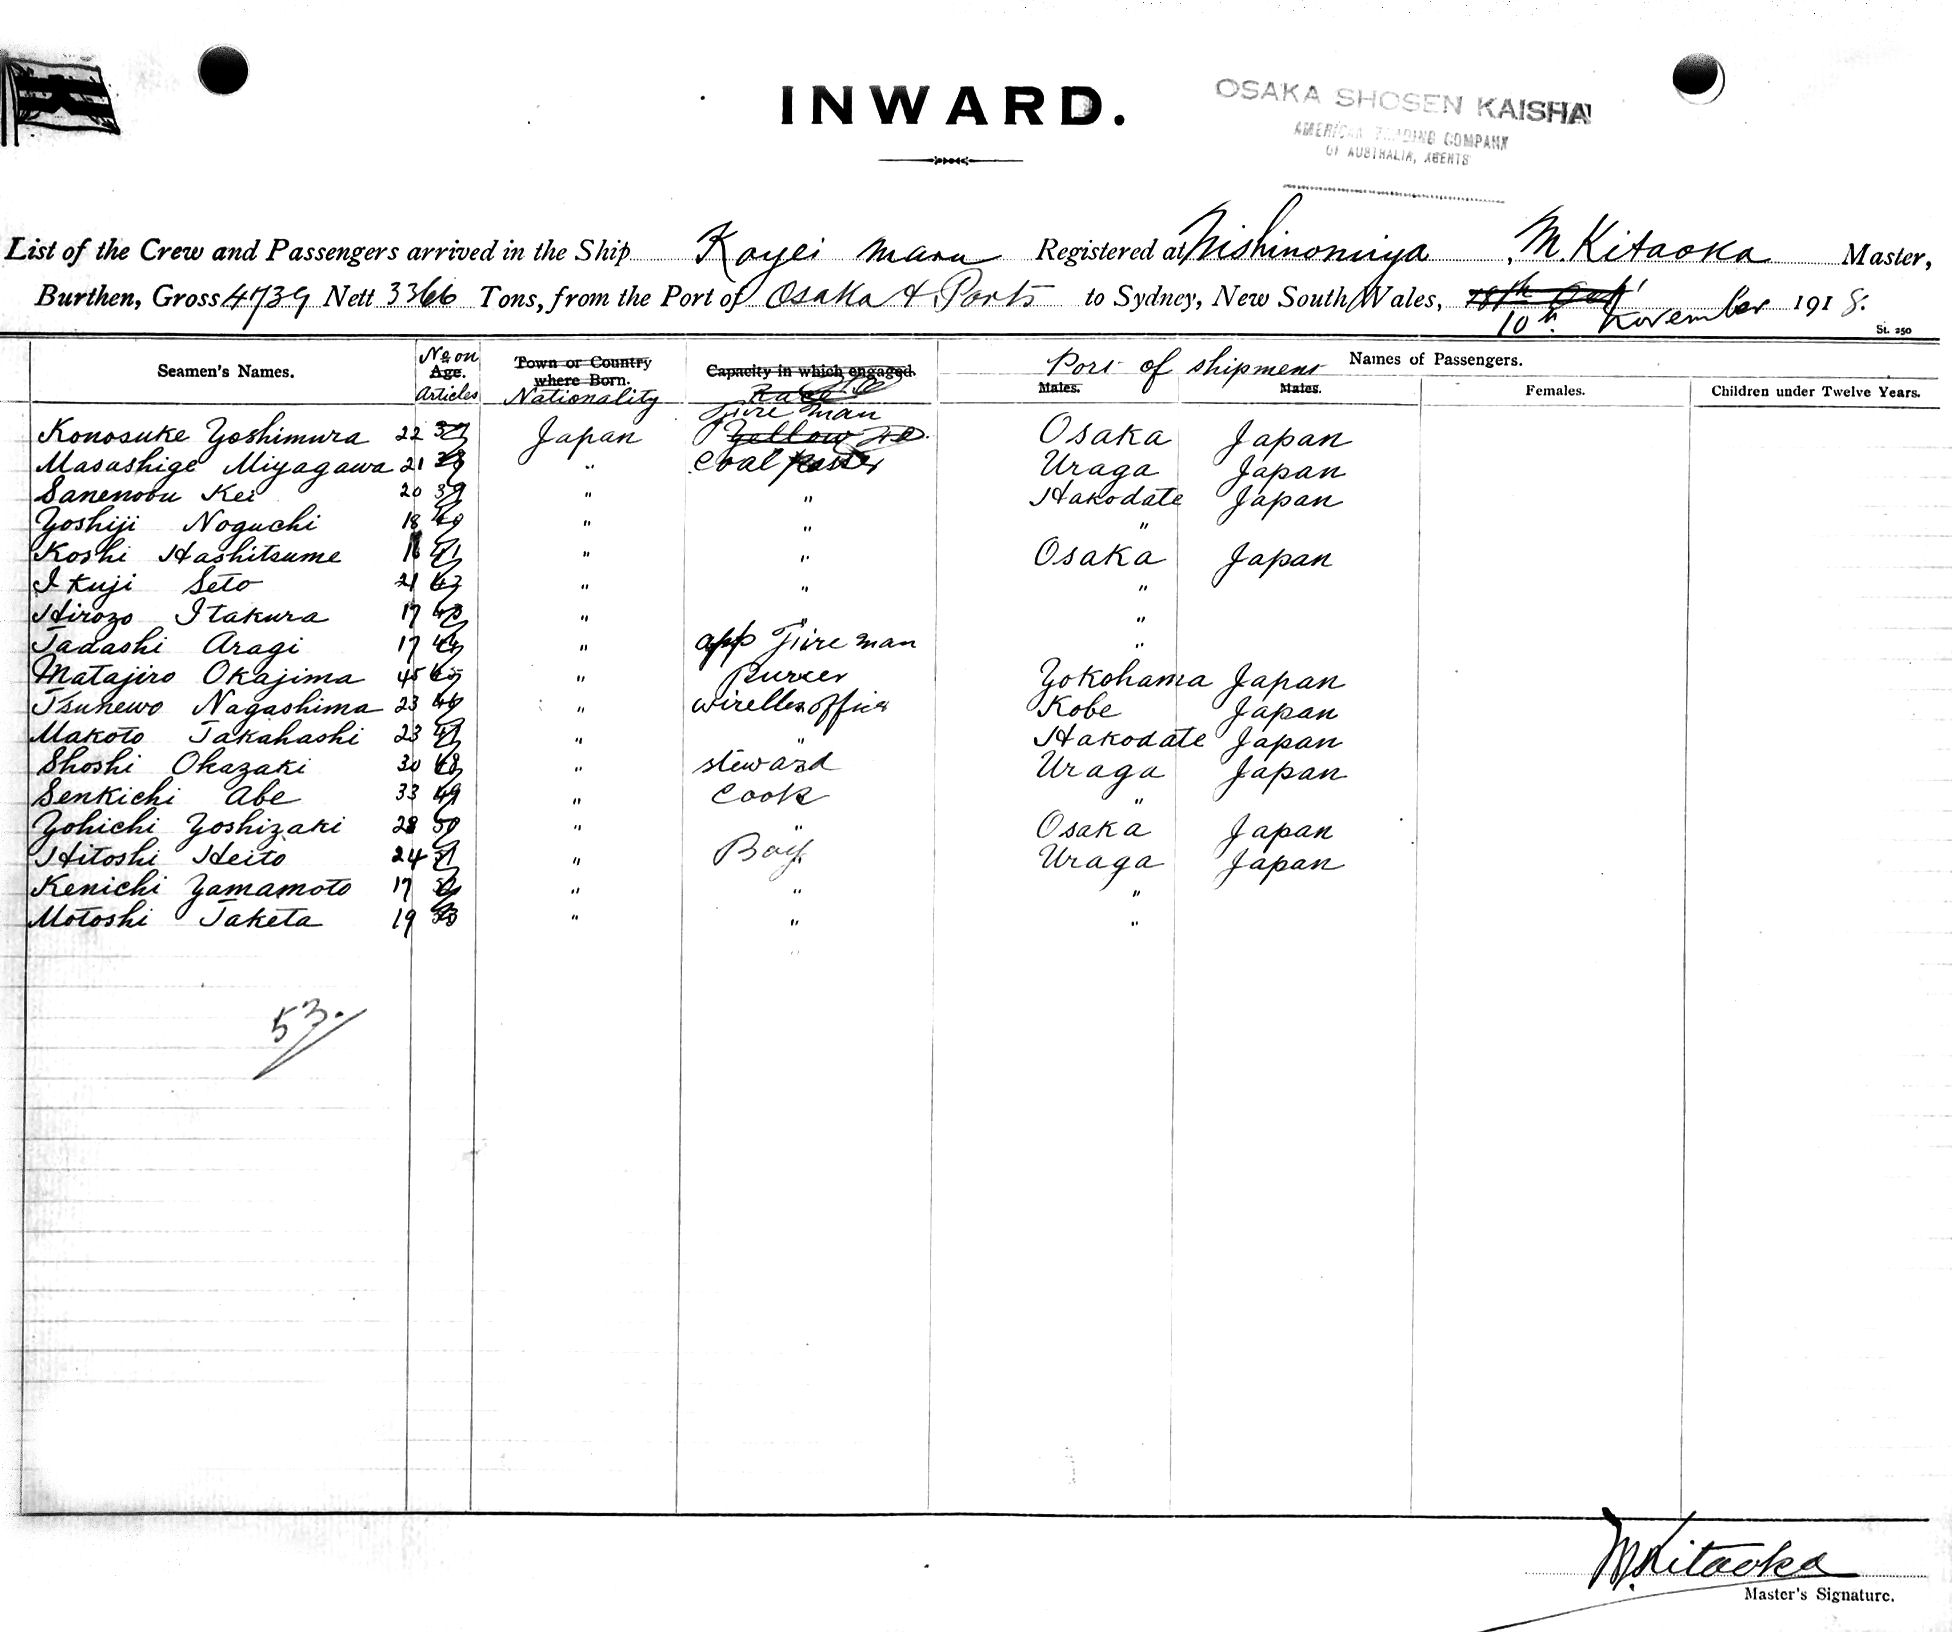 INWARD.
OSAKA SHOSEN KAISHA
AMERICAN TRADING COMPANY
OF AUSTRALIA, AGENTS
List of the Crew and Passengers arrived in the Ship Koyei Maru Registered at Nishinomiya , M. Kitaoka Master,
Burthen, Gross 4739 Nett 3366 Tons, from the Port of Osaka & Ports to Sydney, New South Wales, 18th Oct' 10th. November 1918.
St. 250
Seamen's Names. No on Age. Articles Town or Country where Born. Nationality Capacity in which engaged. Race Port of shipment Names of Passengers.
Males. Males. Females. Children under Twelve Years.
Konosuke Yoshimura 22 37 Japan Fire man Yellow Osaka Japan
Masashige Miyagawa 21 38 " Coal passer Uraga Japan
Sanenobu Kei 20 39 " " Hakodate Japan
Yoshiji Noguchi 18 40 " " "
Koshi Hashitsume 16 41 " " Osaka Japan
Ikuji Seto 21 42 " " "
Hirozo Itakura 17 43 " " "
Tadashi Aragi 17 44 " app Fire man "
Matajiro Okajima 45 45 " Purcer Yokohama Japan
Tsunewo Nagashima 23 46 " wirelles officer Kobe Japan
Makoto Takahashi 23 47 " " Hakodate Japan
Shoshi Okazaki 30 48 " steward Uraga Japan
Senkichi Abe 33 49 " Cook "
Yohichi Yoshizaki 28 50 " " Osaka Japan
Hitoshi Heito 24 51 " Boy Uraga Japan
Kenichi Yamamoto 17 52 " " "
Motoshi Taketa 19 53 " " "
53.
M. Kitaoka
Master's Signature.